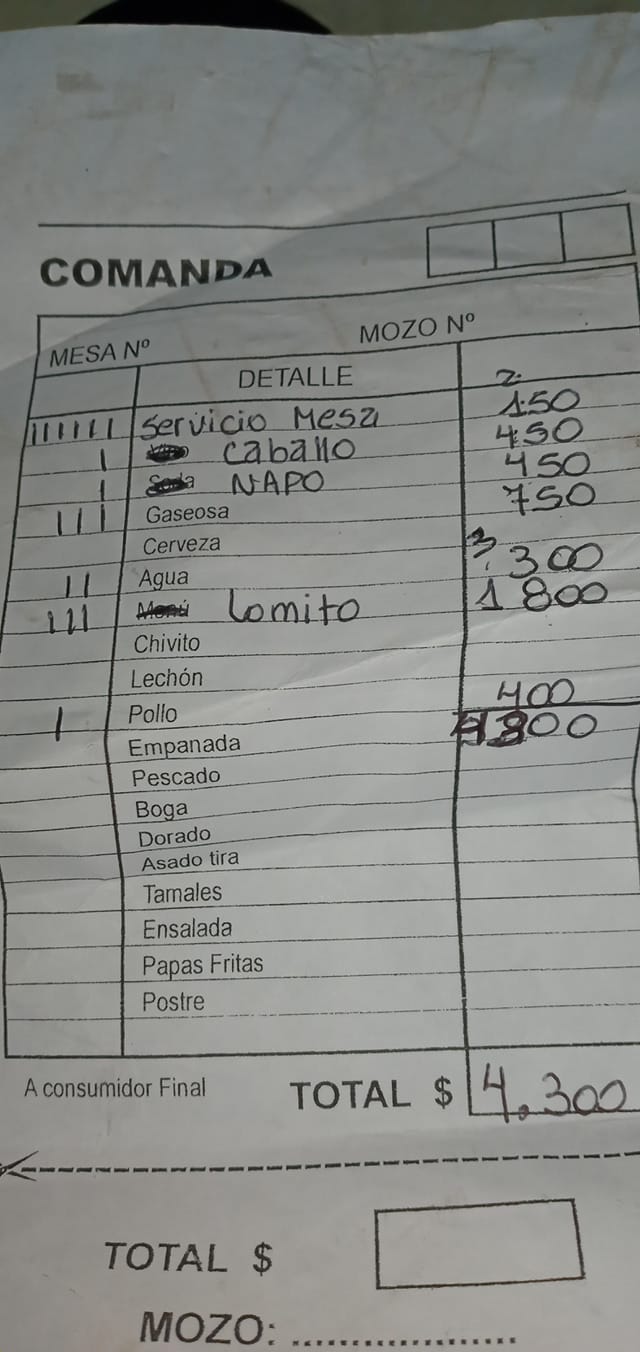 COMANDA
MESA Nº MOZO Nº
DETALLE 2
IIIIII Servicio Mesa 150
I Caballo 450
I NAPO 450
III Gaseosa 750
Cerveza 3
II Agua 300
III Menú Lomito 1800
Chivito
Lechón
I Pollo 400
Empanada 00
Pescado
Boga
Dorado
Asado tira
Tamales
Ensalada
Papas Fritas
Postre
A consumidor Final TOTAL $ 4.300
TOTAL $
MOZO: ....................